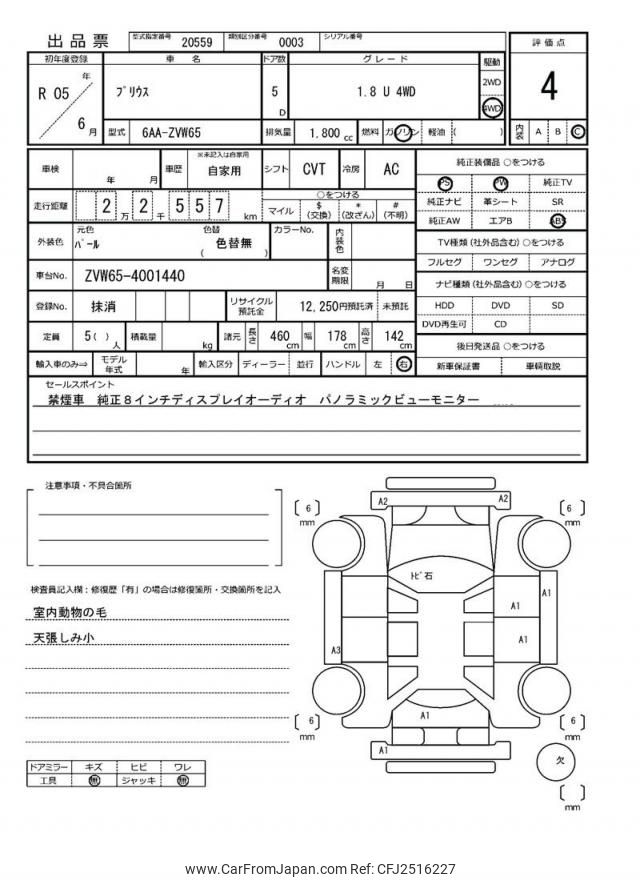 出品票
型式指定番号 20559 類別区分番号 0003 シリアル番号
評価点
初年度登録 車名 ドア数 グレード 駆動
R 05 年 6 月
ﾌﾟﾘｳｽ 5 D 1.8 U 4WD
2WD
4WD
4
型式 6AA-ZVW65 排気量 1.800 cc 燃料 ガソリン 軽油 ( )
内装 A B C
車検 年 月 車歴 ※未記入は自家用 自家用 シフト CVT 冷房 AC
純正装備品 ○をつける
PS PW 純正TV
純正ナビ 革シート SR
純正AW エアB ABS
走行距離 2 万 2 千 5 5 7 km
○をつける
マイル $ (交換) * (改ざん) # (不明)
外装色 元色 ﾊﾟｰﾙ 色替 ( 色替無 ) カラーNo. 内装色
TV種類 (社外品含む) ○をつける
フルセグ ワンセグ アナログ
車台No. ZVW65-4001440 名変期限 月 日
ナビ種類 (社外品含む) ○をつける
HDD DVD SD
DVD再生可 CD
登録No. 抹消 リサイクル預託金 12,250円預託済 未預託
定員 5 ( ) 人 積載量 kg 諸元 長さ 460 cm 幅 178 cm 高さ 142 cm
後日発送品 ○をつける
新車保証書 車輌取説
輸入車のみ⇒ モデル年式 年 輸入区分 ディーラー 並行 ハンドル 左 右
セールスポイント
禁煙車 純正８インチディスプレイオーディオ パノラミックビューモニター
注意事項・不具合箇所
検査員記入欄：修復歴「有」の場合は修復箇所・交換箇所を記入
室内動物の毛
天張しみ小
A2 A2
6 mm
6 mm
ﾄﾋﾞ石
A1
A1
A1
A3
A1
A1
6 mm
6 mm
欠
mm
ドアミラー キズ ヒビ ワレ
工具 無 ジャッキ 無
www.CarFromJapan.com Ref: CFJ2516227